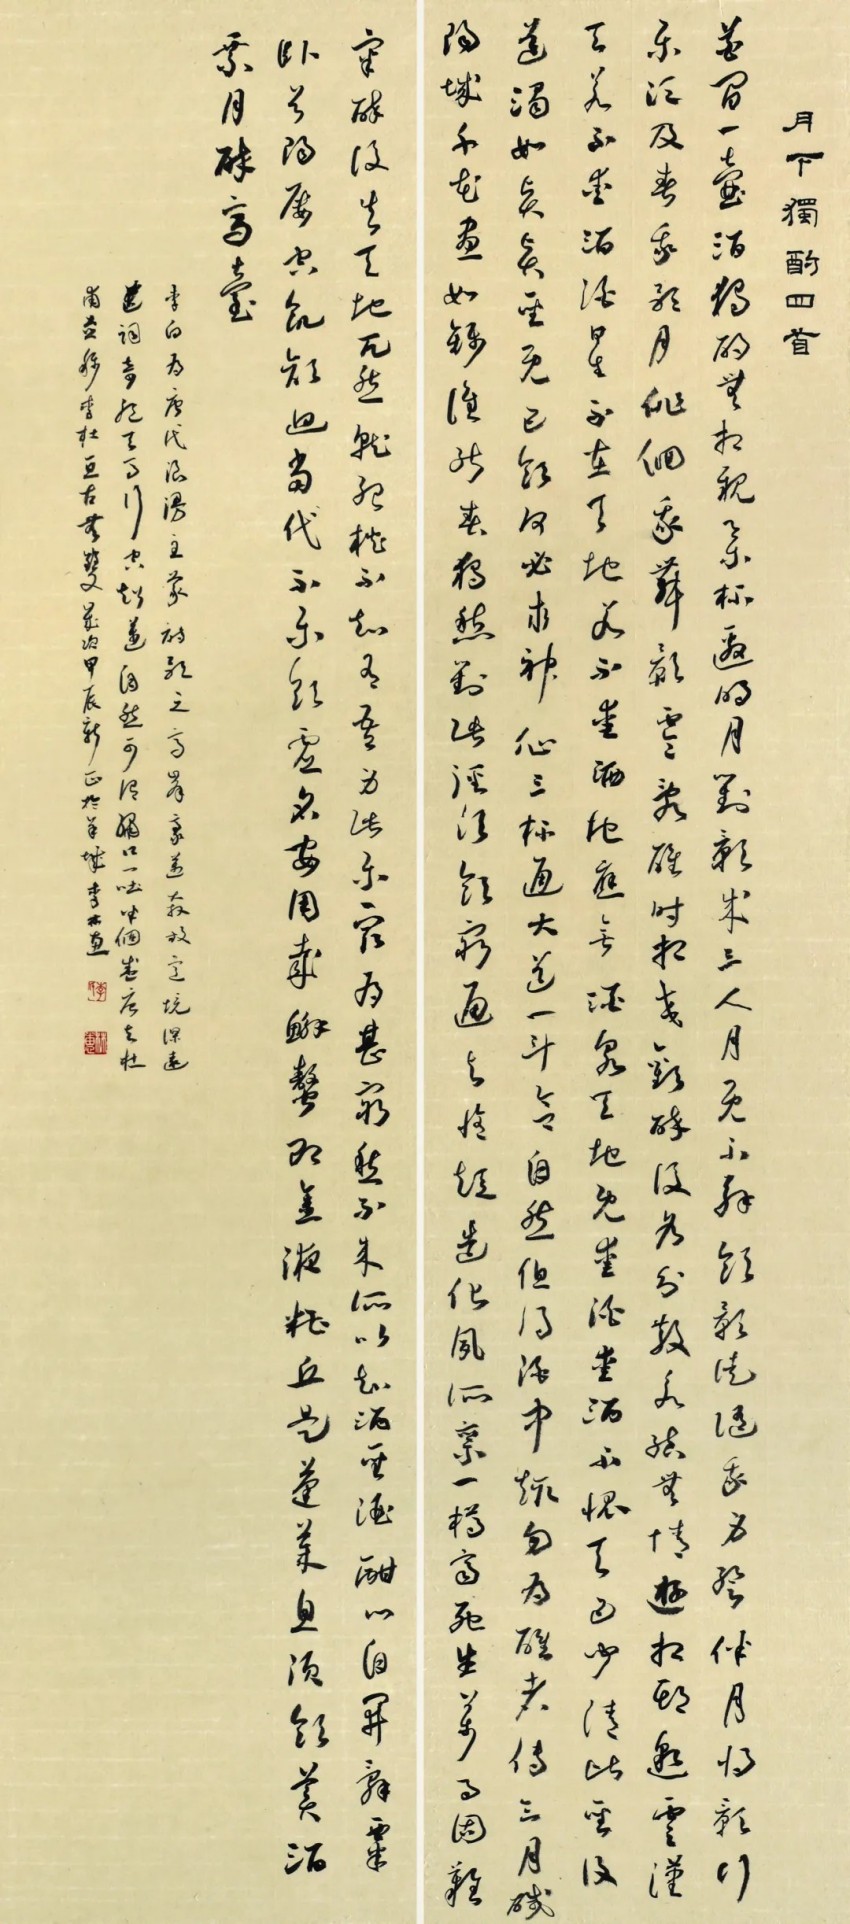 月下獨酌四首
花間一壺酒獨酌無相親舉杯邀明月對影成三人月既不解飲影徒隨我身暫伴月將影行
樂須及春我歌月徘徊我舞影零亂醒時相交歡醉後各分散永結無情遊相期邈雲漢
天若不愛酒酒星不在天地若不愛酒地應無酒泉天地既愛酒愛酒不愧天已聞清比聖復
道濁如賢賢聖既已飲何必求神仙三杯通大道一斗合自然但得酒中趣勿為醒者傳三月咸
陽城千花晝如錦誰能春獨愁對此徑須飲窮通與修短造化夙所稟一樽齊死生萬事固難
審醉後失天地兀然就孤枕不知有吾身此樂最為甚窮愁不來所以知酒聖酒酣心自開辭粟
臥首陽屢空飢顏回當代不樂飲虛名安用哉蟹螯即金液糟丘是蓬萊且須飲美酒
乘月醉高臺
李白為唐代浪漫主義詩歌之高峰豪邁奔放意境深遠
其詞奇絕天馬行空超逸自然可謂繡口一吐半個盛唐與杜
甫並稱李杜亙古無雙歲次甲辰新正於羊城李林